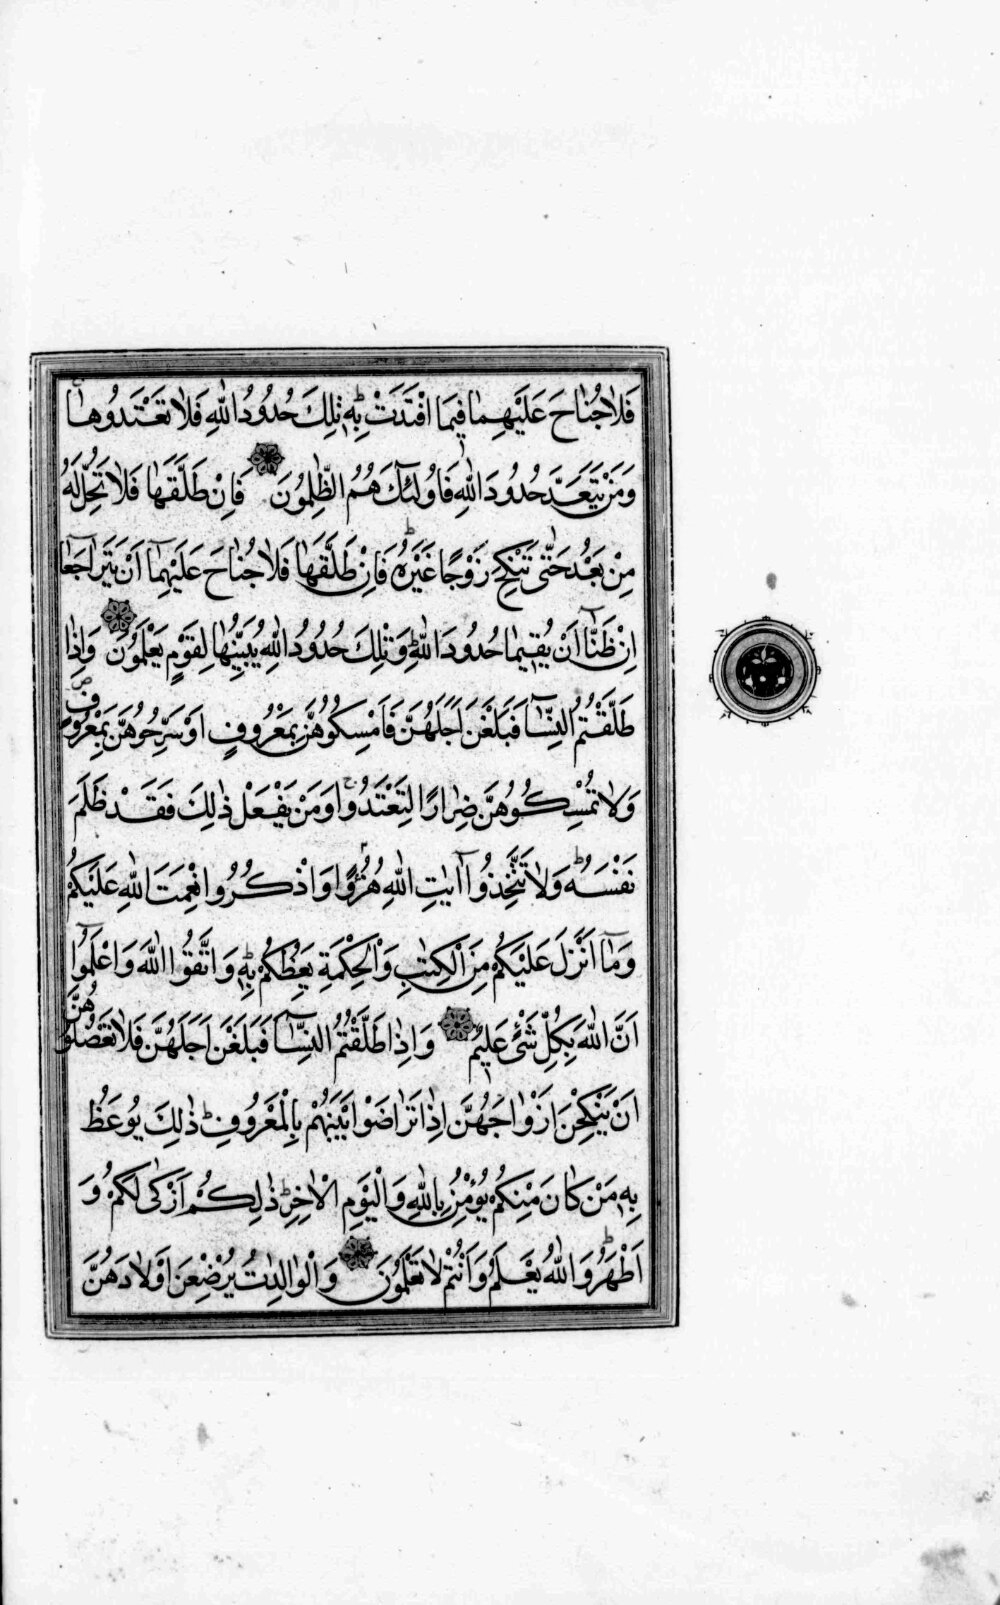 فَلَا جُنَاحَ عَلَيْهِمَا فِيمَا افْتَدَتْ بِهِ تِلْكَ حُدُودُ اللّٰهِ فَلَا تَعْتَدُوهَا
وَمَنْ يَتَعَدَّ حُدُودَ اللّٰهِ فَاُولٰئِكَ هُمُ الظّٰلِمُونَ فَاِنْ طَلَّقَهَا فَلَا تَحِلُّ لَهُ
مِنْ بَعْدُ حَتّٰى تَنْكِحَ زَوْجًا غَيْرَهُ فَاِنْ طَلَّقَهَا فَلَا جُنَاحَ عَلَيْهِمَا اَنْ يَتَرَاجَعَا
اِنْ ظَنَّا اَنْ يُقِيمَا حُدُودَ اللّٰهِ وَتِلْكَ حُدُودُ اللّٰهِ يُبَيِّنُهَا لِقَوْمٍ يَعْلَمُونَ وَاِذَا
طَلَّقْتُمُ النِّسَآءَ فَبَلَغْنَ اَجَلَهُنَّ فَاَمْسِكُوهُنَّ بِمَعْرُوفٍ اَوْ سَرِّحُوهُنَّ بِمَعْرُوفٍ
وَلَا تُمْسِكُوهُنَّ ضِرَارًا لِتَعْتَدُوا وَمَنْ يَفْعَلْ ذٰلِكَ فَقَدْ ظَلَمَ
نَفْسَهُ وَلَا تَتَّخِذُوا اٰيَاتِ اللّٰهِ هُزُؤًا وَاذْكُرُوا نِعْمَتَ اللّٰهِ عَلَيْكُمْ
وَمَا اَنْزَلَ عَلَيْكُمْ مِنَ الْكِتٰبِ وَالْحِكْمَةِ يَعِظُكُمْ بِهِ وَاتَّقُوا اللّٰهَ وَاعْلَمُوا
اَنَّ اللّٰهَ بِكُلِّ شَيْءٍ عَلِيمٌ وَاِذَا طَلَّقْتُمُ النِّسَآءَ فَبَلَغْنَ اَجَلَهُنَّ فَلَا تَعْضُلُوهُنَّ
اَنْ يَنْكِحْنَ اَزْوَاجَهُنَّ اِذَا تَرَاضَوْا بَيْنَهُمْ بِالْمَعْرُوفِ ذٰلِكَ يُوعَظُ
بِهِ مَنْ كَانَ مِنْكُمْ يُؤْمِنُ بِاللّٰهِ وَالْيَوْمِ الْاٰخِرِ ذٰلِكُمْ اَزْكٰى لَكُمْ وَ
اَطْهَرُ وَاللّٰهُ يَعْلَمُ وَاَنْتُمْ لَا تَعْلَمُونَ وَالْوَالِدَاتُ يُرْضِعْنَ اَوْلَادَهُنَّ